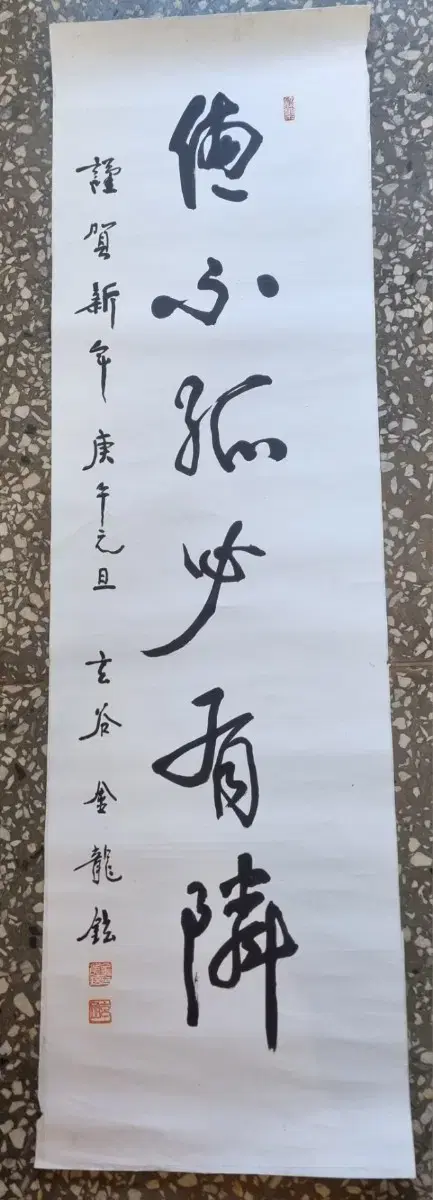 德不孤必有隣
謹賀新年 庚午元旦 玄谷 金龍鉉